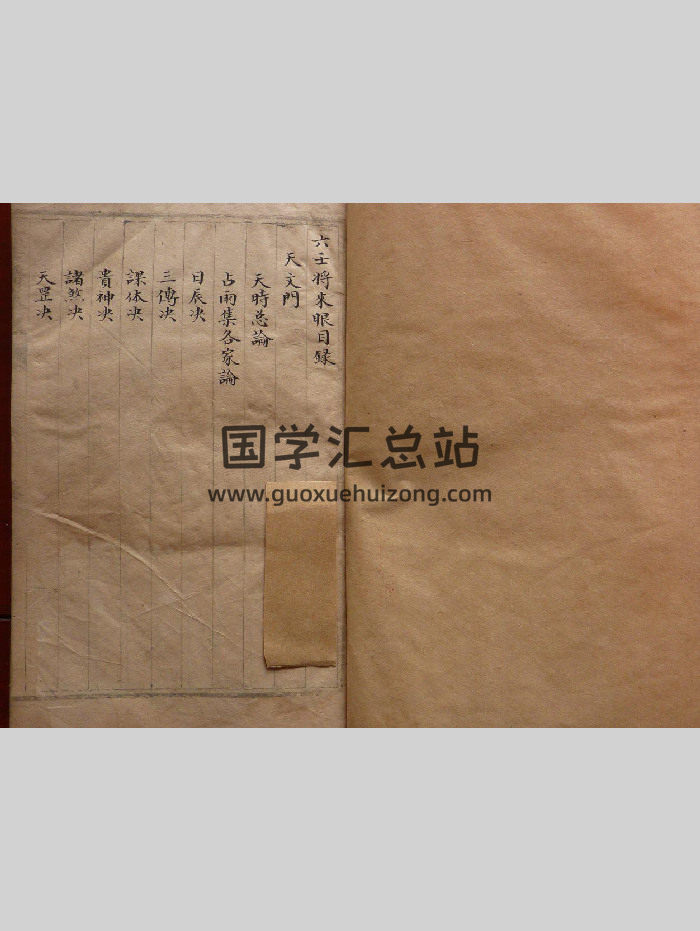 六壬将来眼目録
天文門
天時总論
占雨集各家論
日辰决
三傳决
課体决
貴神决
諸煞决
天罡决
国学汇总站
www.guoxuehuizong.com